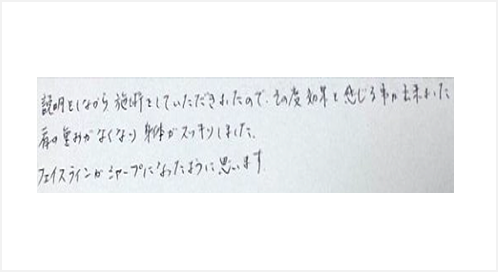 説明をしながら施術をしていただきましたので、その度効果を感じる事が出来ました
肩の重みがなくなり身体がスッキリしました。
フェイスラインがシャープになったように思います。